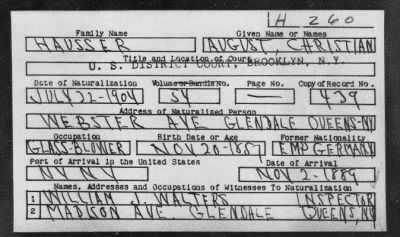 H 260
Family Name Given Name or Names
HAUSSER AUGUST, CHRISTIAN
Title and Location of Court
U. S. DISTRICT COURT, BROOKLYN, N.Y.
Date of Naturalization Volume or Bundle No. Page No. Copy of Record No.
JULY 22-1904 54 — 439
Address of Naturalized Person
WEBSTER AVE GLENDALE QUEENS-NY
Occupation Birth Date or Age Former Nationality
GLASS-BLOWER NOV 20-1857 EMP GERMANY
Port of Arrival in the United States Date of Arrival
NY NY NOV 2-1889
Names, Addresses and Occupations of Witnesses To Naturalization
1 WILLIAM J. WALTERS INSPECTOR
2 MADISON AVE GLENDALE QUEENS, NY